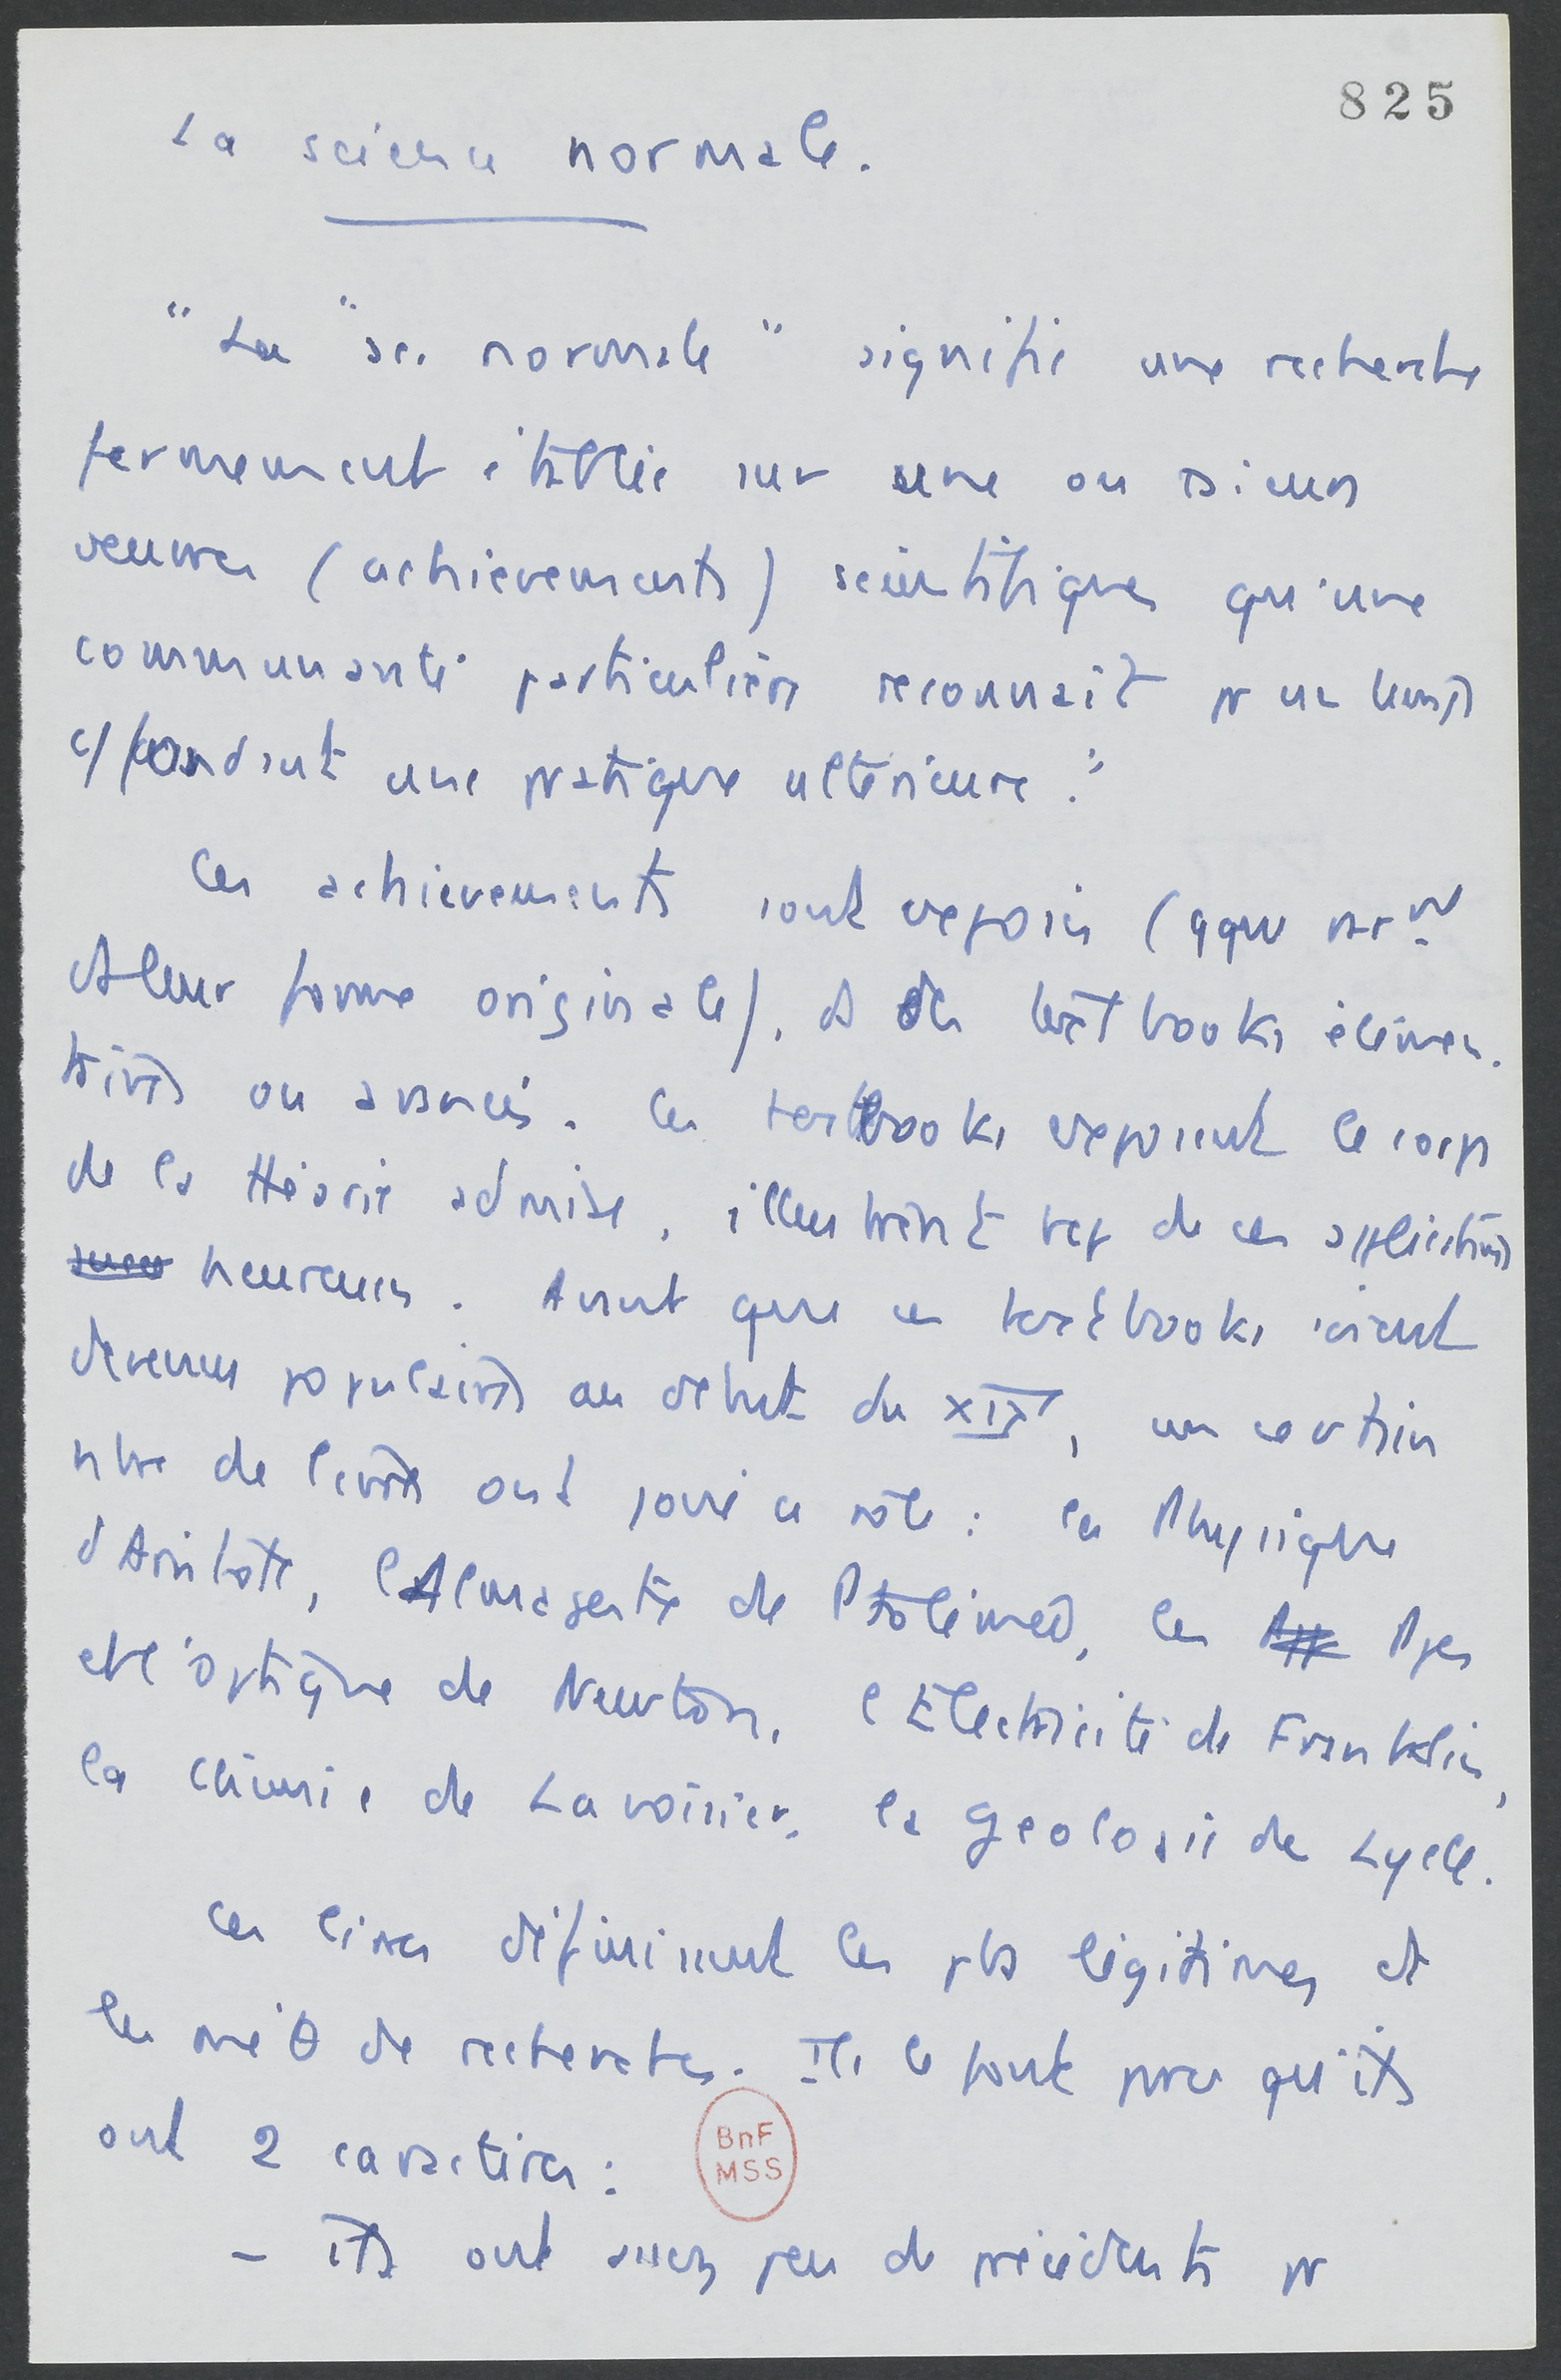 825
La science normale.
" La "sc. normale" signifie une recherche
fermement établie sur une ou
œuvres (achievements) scientifiques qu'une
communauté particulière reconnaît pr un temps
c/ fondant une pratique ultérieure."
Ces achievements sont exposés (qque
et leur forme originale), ds des textbooks élémen-
taires ou avancés. Ces textbooks exposent le corps
de la théorie admise, illustrent de ces applications
heureuses. Avant que ces textbooks soient
devenus populaires au début du XIX, un certain
nbre de livres ont joué ce rôle : la Physique
d'Aristote, l'Almageste de Ptolémée, les Ppes
et l'optique de Newton, l'Electricité de Franklin,
la chimie de Lavoisier, la Géologie de Lyell.
Ces livres définissent les pbs légitimes et
les méθ de recherches. Ils le font parce qu'ils
ont 2 caractères :
BnF
MSS
– ils ont assez peu de précédents pr